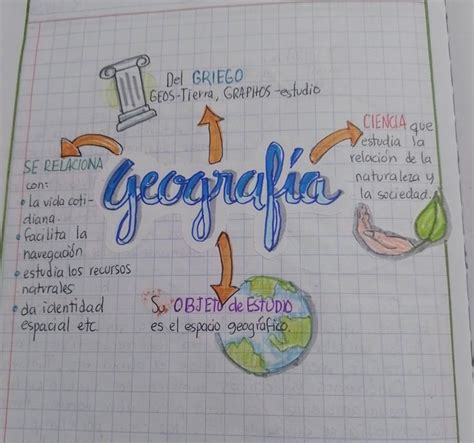 Del GRIEGO
GEOS-Tierra, GRAPHOS-estudio
CIENCIA que
estudia la
relación de la
naturaleza y
la sociedad.
SE RELACIONA
con:
• la vida coti-
diana.
• facilita la
navegación
• estudia los recursos
naturales
• da identidad
espacial etc.
Geografía
Su OBJETO de ESTUDIO
es el espacio geográfico.